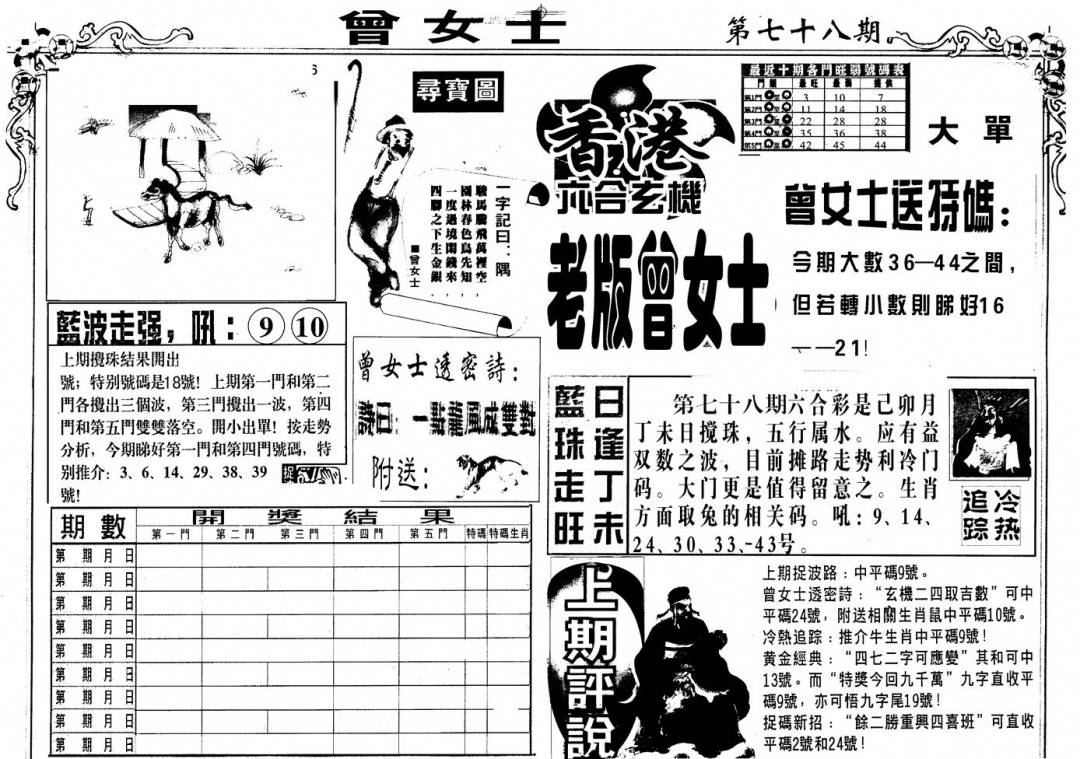 曾女士
第七十八期
尋寶圖
一字記曰：隅
駿馬騰飛萬裡空，
園林春色鳥先知，
一度過境閑錢來，
四腳之下生金銀。
■曾女士
香港
六合玄機
老版曾女士
最近十期各門旺弱號碼表
門類 最旺 最弱 提供
第1門 3 10 7
第2門 11 14 18
第3門 22 28 28
第4門 35 36 38
第5門 42 45 44
大單
曾女士送特碼：
今期大數36—44之間，
但若轉小數則睇好16
——21！
藍波走强，吼：⑨⑩
上期攪珠結果開出
號；特别號碼是18號！上期第一門和第二
門各攪出三個波，第三門攪出一波，第四
門和第五門雙雙落空。開小出單！按走勢
分析，今期睇好第一門和第四門號碼，特
别推介：3、6、14、29、38、39
號！
曾女士透密詩：
詩曰：一點龍風成雙對
附送：
藍珠走旺
日逢丁未
第七十八期六合彩是己卯月
丁未日搅珠，五行属水。应有益
双数之波，目前摊路走势利冷门
码。大门更是值得留意之。生肖
方面取兔的相关码。吼：9、14、
24、30、33、-43号。
冷热
追踪
期數 開獎結果
第一門 第二門 第三門 第四門 第五門 特碼 特碼生肖
第 期 月 日
第 期 月 日
第 期 月 日
第 期 月 日
第 期 月 日
第 期 月 日
第 期 月 日
第 期 月 日
第 期 月 日
上期評說
上期捉波路：中平碼9號。
曾女士透密詩：“玄機二四取吉數”可中
平碼24號，附送相關生肖鼠中平碼10號。
冷熱追踪：推介牛生肖中平碼9號！
黄金經典：“四七二字可應變”其和可中
13號。而“特獎今回九千萬”九字直收平
碼9號，亦可悟九字尾19號！
捉碼新招：“餘二勝重興四喜班”可直收
平碼2號和24號！